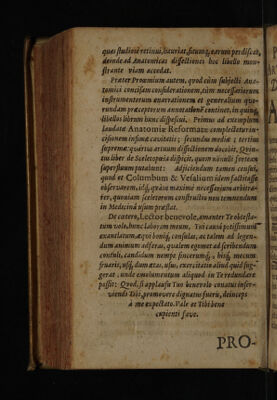 ques studiosè retinui, hauriat,
deinde ad Anatomicas dissectiones hoc libello mon-
strante viam accedat.
Præter Proœmium autem, quod cùm subjecti Ana-
tomici concisam considerationem, tùm necessariorum
instrumentorum enarrationem et generalium quo-
rundam præceptorum annotationem continet, in quinq;
libellos librum hunc disposui. Primus ad exemplum
laudatæ Anatomiæ Reformatæ complectitur in-
cisionem infimæ cavitatis; secundus mediæ; tertius
supremæ: quartus artuum dissectionem docebit, Quin-
tus liber de Sceletopœia dispicit, quem nonnulli fortean
superfluum putabunt: Adjiciendum tamen censui,
quod et Columbum & Vesalium idem factitasse
observarem, idq; quàm maximè necessarium arbitra-
rer, quoniam sceletorum constructio non contemnen-
dum in Medicinâ usum præstat.
De cætero, Lector benevole, amanter Te obtesta-
tum volo, hunc laborem meum, Tui causâ potissimùm
exantlatum, æqui boniq; consulas, ac talem ad legen-
dum animum adferas, qualem egomet ad scribendum
contuli, candidum nempe sincerumq;, hisq; mecum
fruaris, usq; dum ætas, usus, exercitatio aliud quid sug-
gerat, unde emolumentum aliquod in Te redundare
possit: Quod, si applausu Tuo benevolo conatus inser-
viendi Tibi, promovere dignatus fueris, deinceps
à me expectato. Vale et Tibi bene
cupienti fave.
PRO-